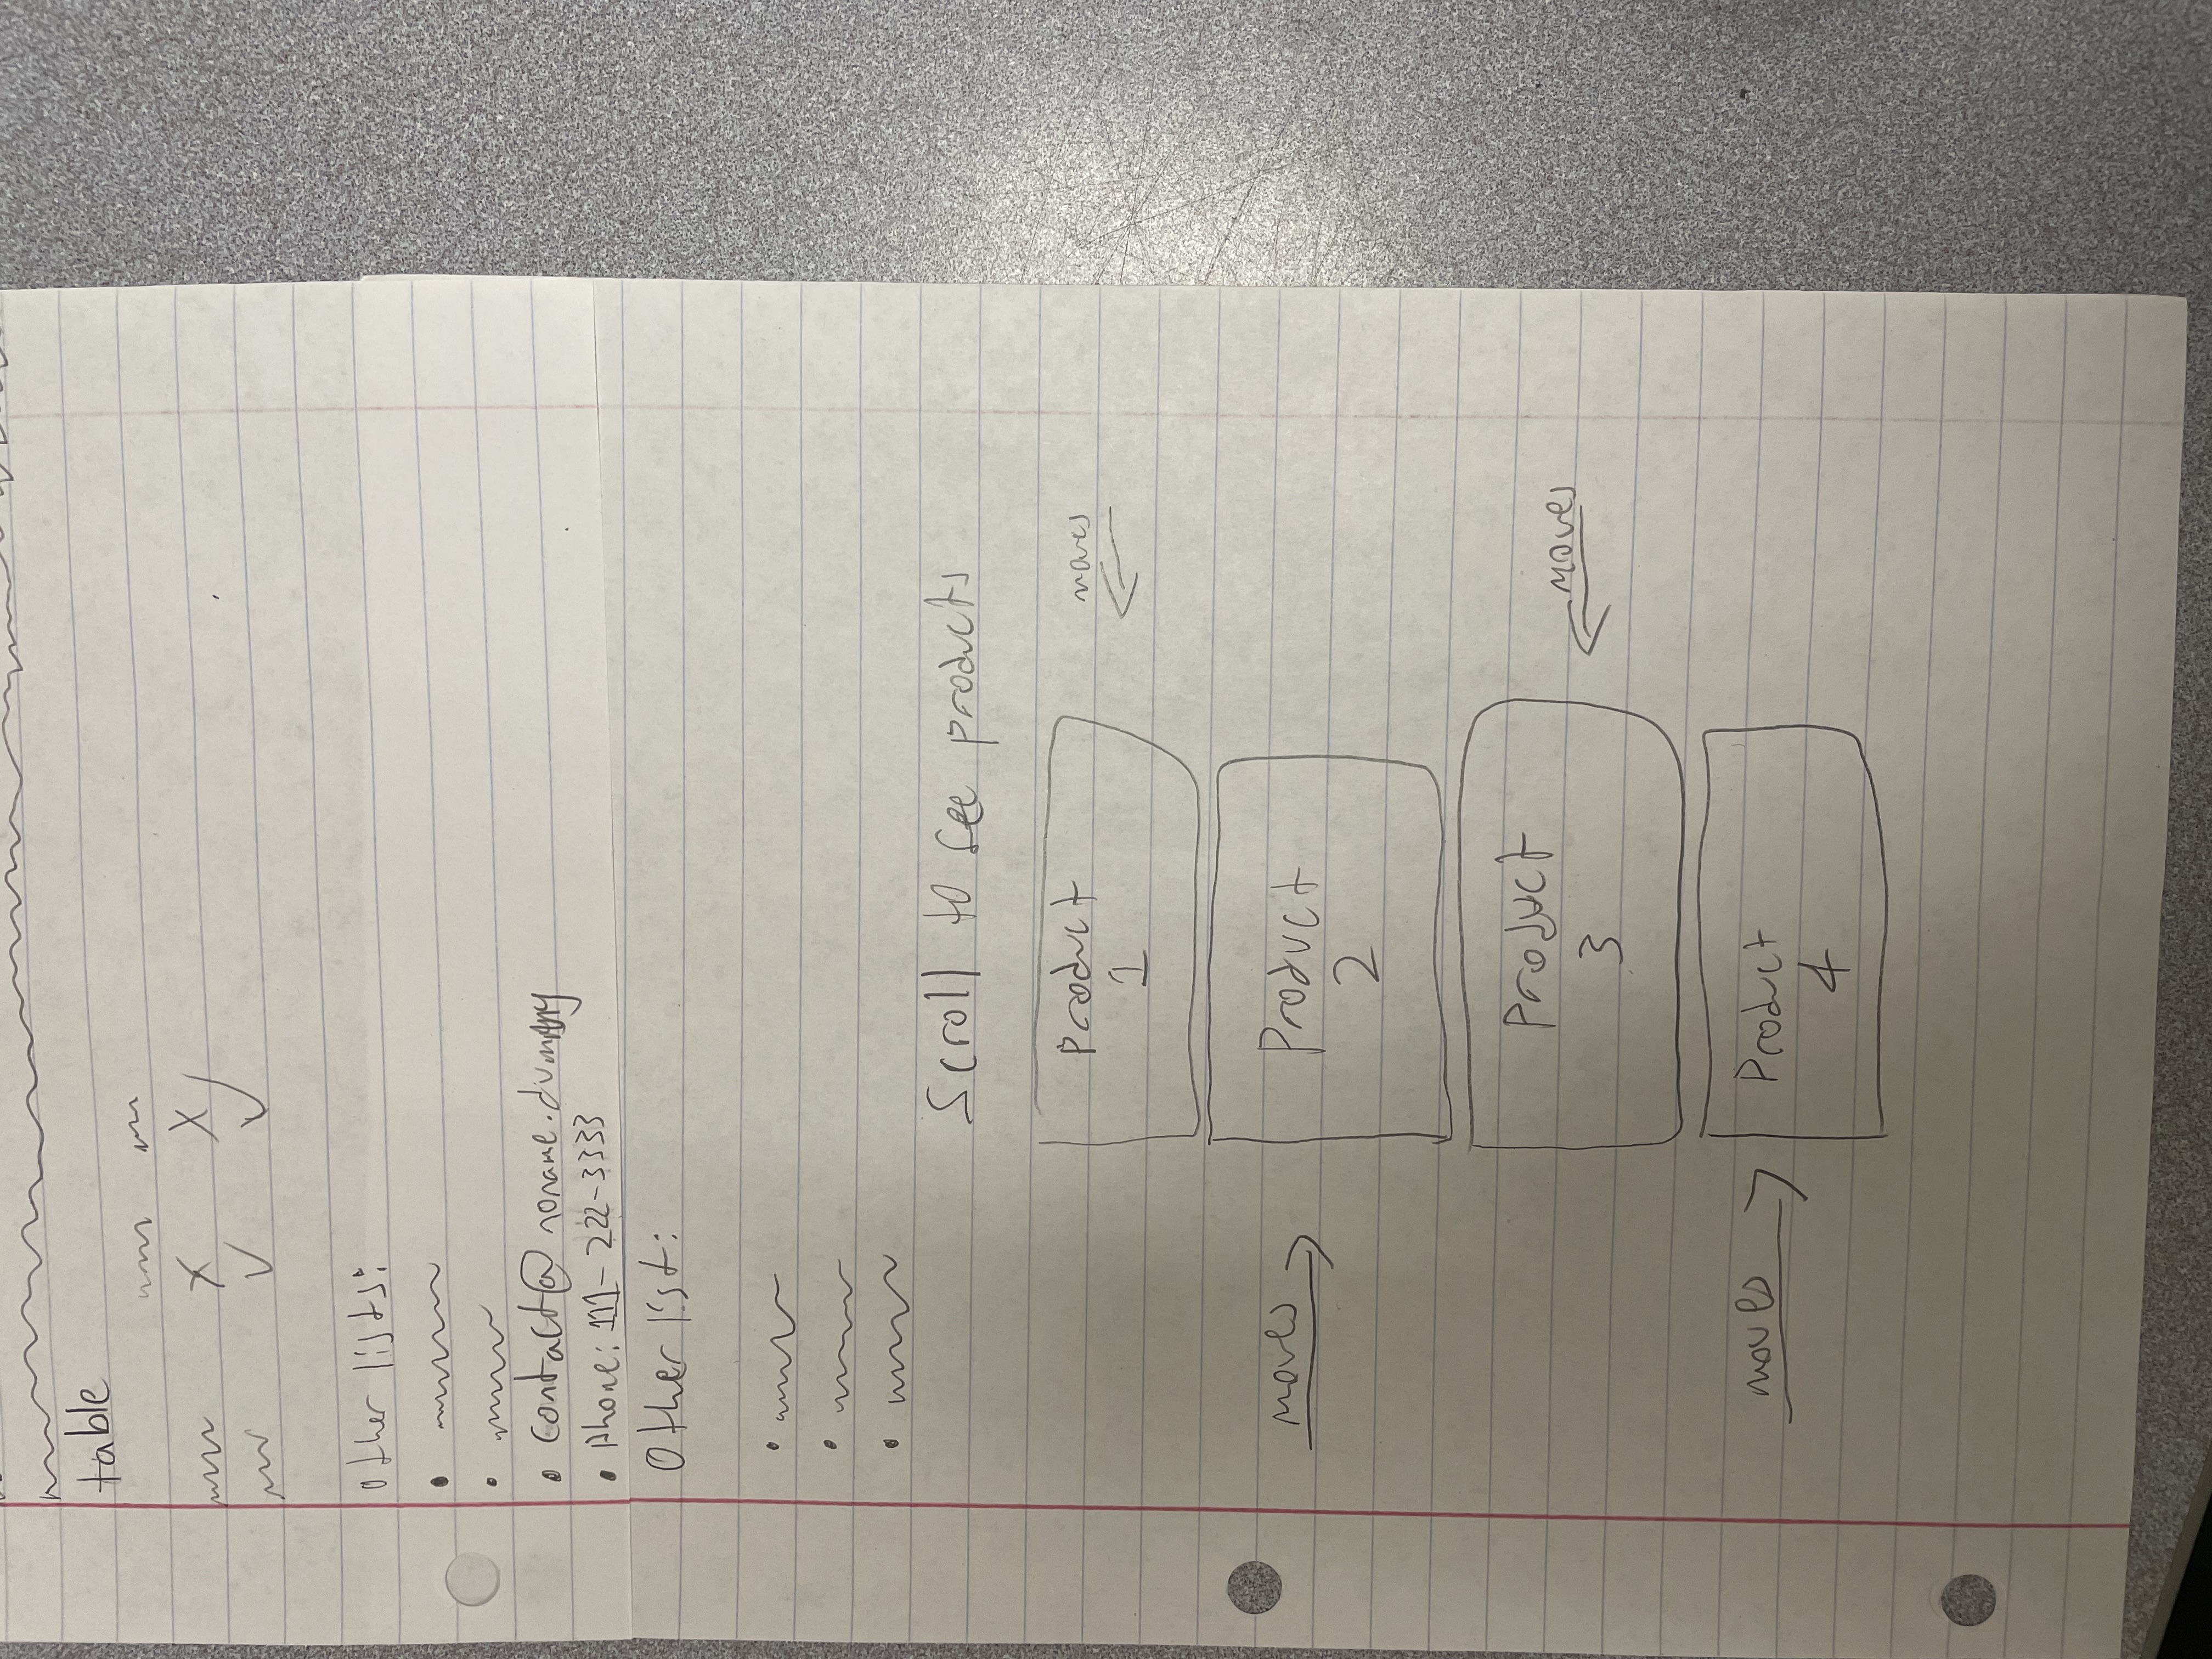 table
X X
✓ ✓
Other lists:
• contact@noname.dummy
• Phone: 111-222-3333
Other list:
Scroll to see products
Product
1
moves
moves
Product
2
Product
3
moves
moves
Product
4